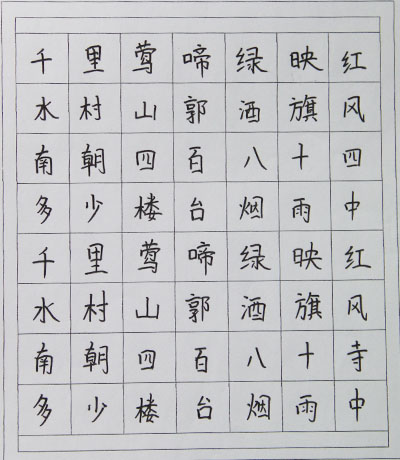 千里莺啼绿映红
水村山郭酒旗风
南朝四百八十四
多少楼台烟雨中
千里莺啼绿映红
水村山郭酒旗风
南朝四百八十寺
多少楼台烟雨中